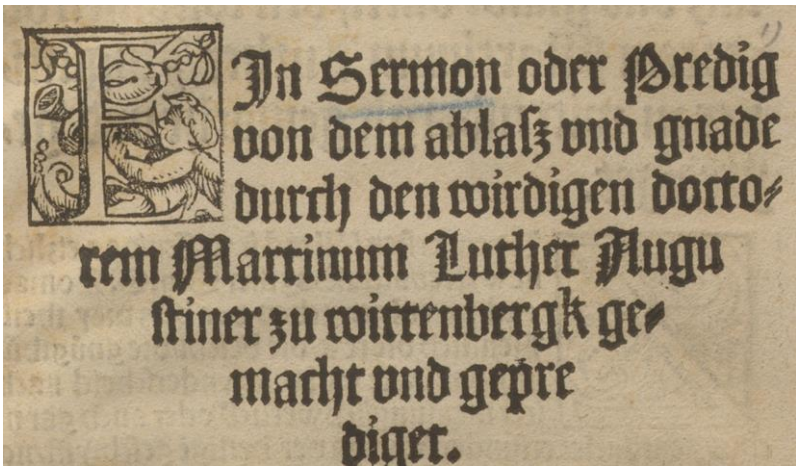 EJn Sermon oder Predig
von dem ablasz vnd gnade
durch den wirdigen docto⸗
rem Martinum Luther Augu
stiner zu wittenbergk ge⸗
macht vnd gepre
diget.